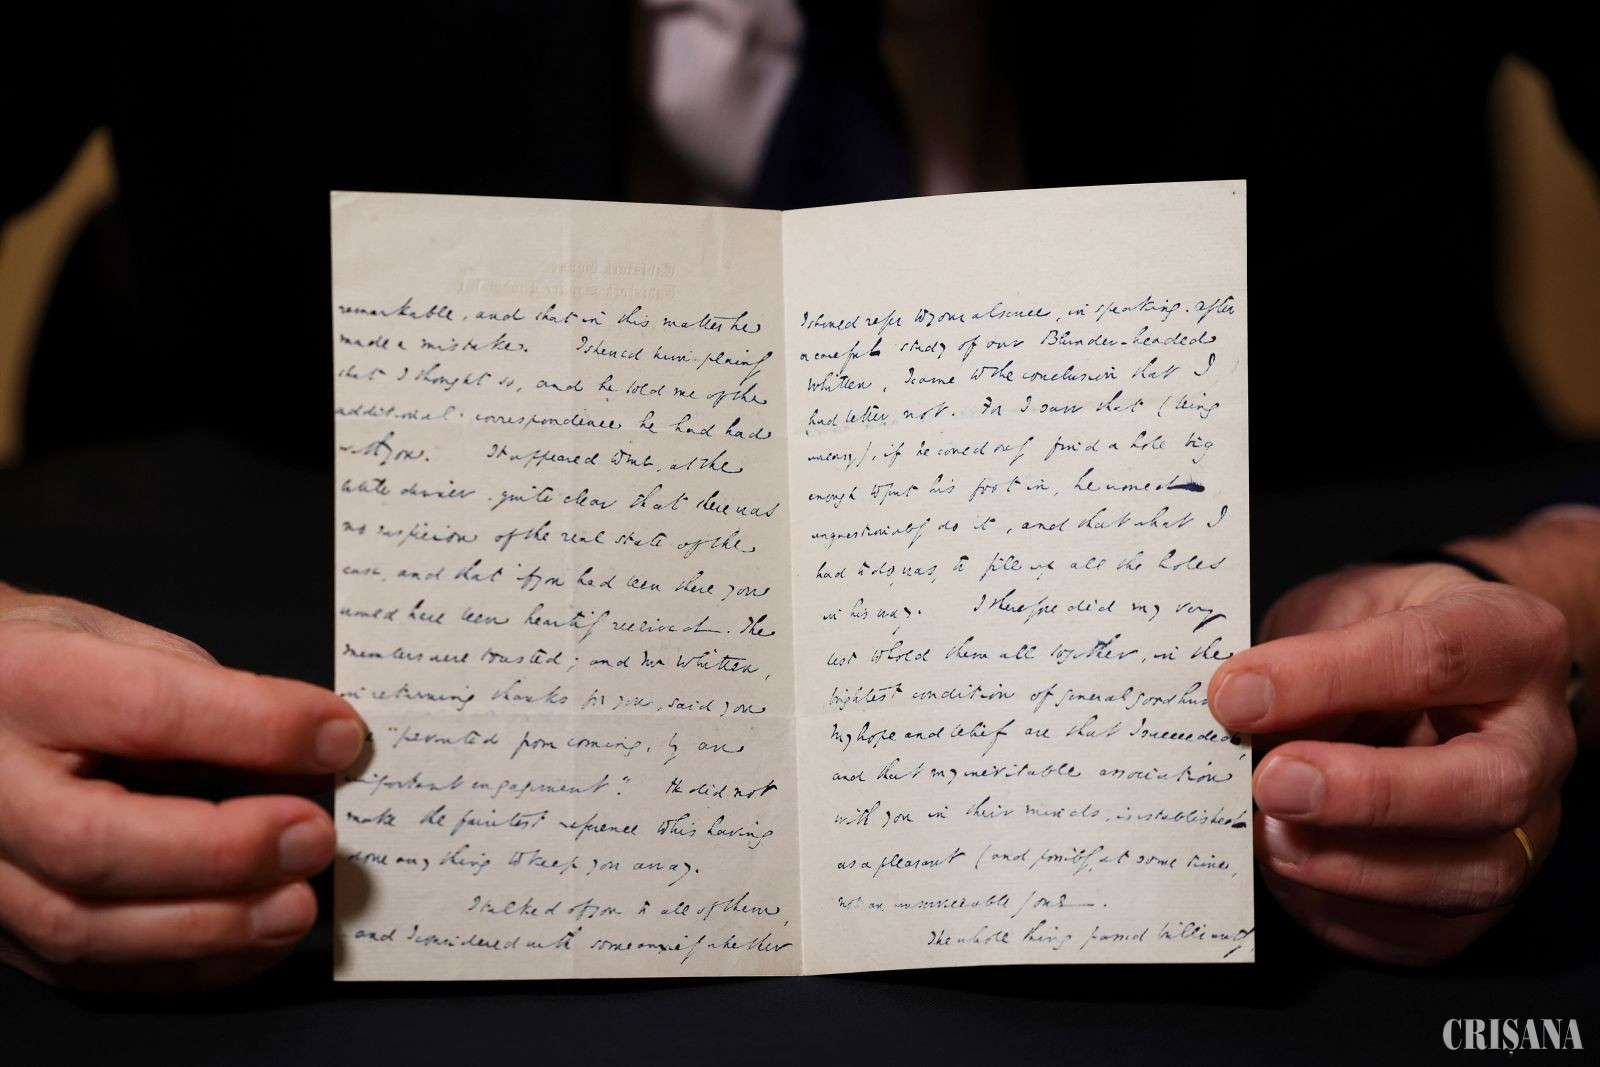 Tavistock House
Tavistock Square London W C
remarkable, and that in this matter he
made a mistake. I shewed him plainly
that I thought so, and he told me of the
additional correspondence he had had
with you. It appeared to me, at the
little dinner, quite clear that there was
no suspicion of the real state of the
case, and that if you had been there you
would have been heartily received. The
members were toasted; and Mr Whitten,
in returning thanks for you, said you
"prevented from coming, by an
important engagement". He did not
make the faintest reference to his having
done any thing to keep you away.
I talked of you to all of them,
and I considered with some anxiety whether
I should refer to your absence, in speaking. After
a careful study of our Blunder-headed
Whitten, I came to the conclusion that I
had better not. For I saw that (being
uneasy), if he could only find a hole big
enough to put his foot in, he would
unquestionably do it, and that what I
had to do was, to fill up all the holes
in his way. I therefore did my very
best to hold them all together, in the
brightest condition of general good hum
My hope and belief are that I succeeded,
and that my inevitable association
with you in their minds, is established
as a pleasant (and possibly, at some time,
not an unserviceable) one.
The whole thing passed brilliantly,
CRIȘANA